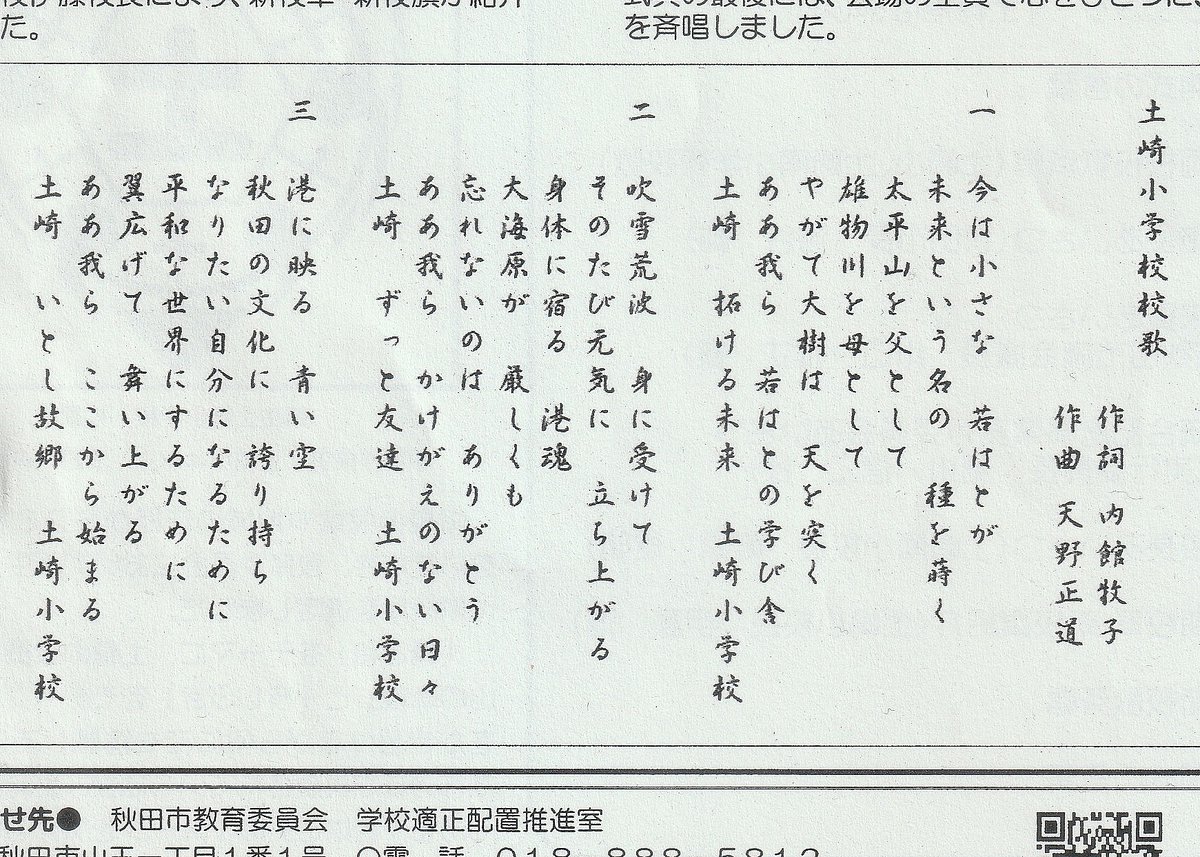 た。
を斉唱しました。
土崎小学校校歌
作詞 内館牧子
作曲 天野正道
一
今は小さな 若はとが
未来という名の 種を蒔く
太平山を父として
雄物川を母として
やがて大樹は 天を突く
ああ我ら 若はとの学び舎
土崎 拓ける未来 土崎小学校
二
吹雪荒波 身に受けて
そのたび元気に 立ち上がる
身体に宿る 港魂
大海原が 厳しくも
忘れないのは ありがとう
ああ我ら かけがえのない日々
土崎 ずっと友達 土崎小学校
三
港に映る 青い空
秋田の文化に 誇り持ち
なりたい自分になるために
平和な世界にするために
翼広げて 舞い上がる
ああ我ら ここから始まる
土崎 いとし故郷 土崎小学校
せ先● 秋田市教育委員会 学校適正配置推進室